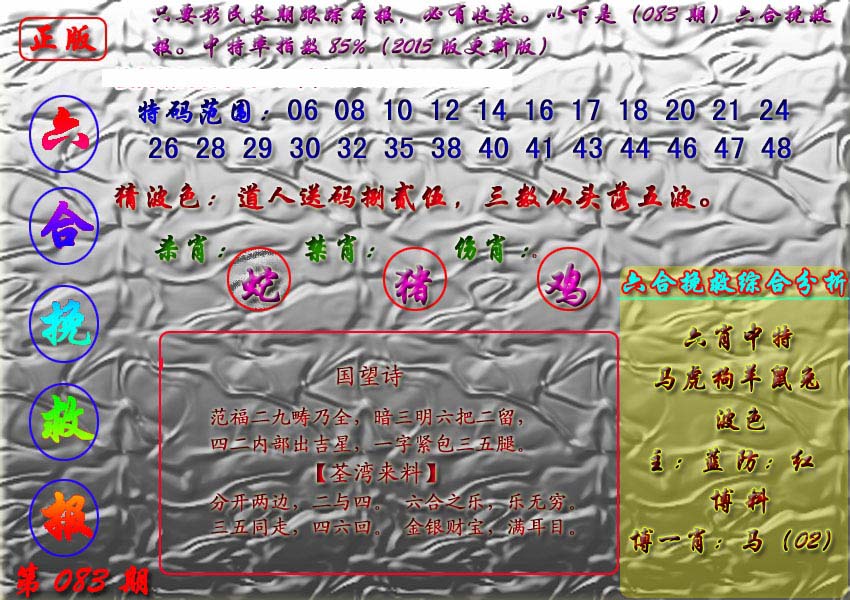 正版
只要彩民长期跟踪本报，必有收获。以下是（083期）六合挽救
报。中特率指数85%（2015版更新版）
六合挽救报
第083期
特码范围：06 08 10 12 14 16 17 18 20 21 24
26 28 29 30 32 35 38 40 41 43 44 46 47 48
猜波色：道人送码捌贰伍，三数从头落五波。
杀肖：蛇 禁肖：猪 伤肖：鸡
国望诗
范福二九畴乃全，暗三明六把二留，
四二内部出吉星，一字紧包三五腿。
【荃湾来料】
分开两边，二与四。 六合之乐，乐无穷。
三五同走，四六回。 金银财宝，满耳目。
六合挽救综合分析
六肖中特
马虎狗羊鼠兔
波色
主：蓝防：红
博料
博一肖：马（02）